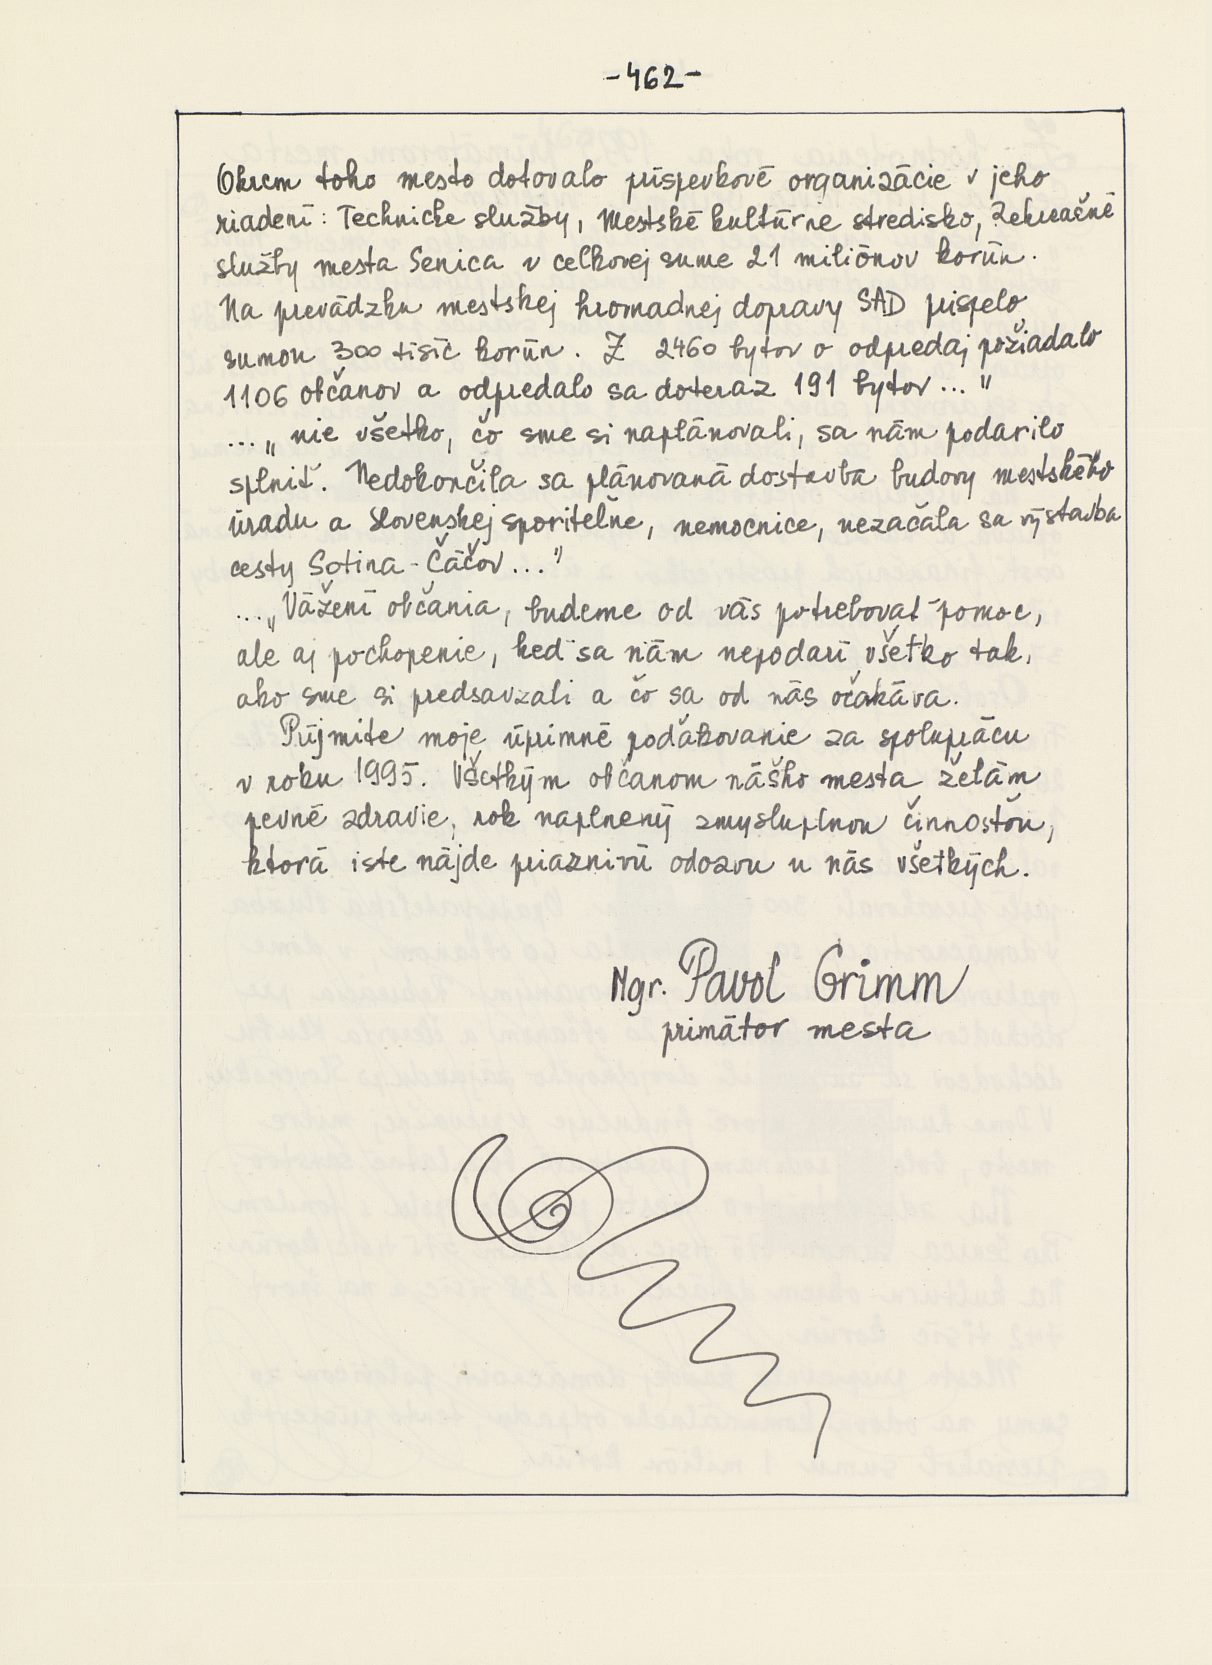 -462-
Okrem toho mesto dotovalo príspevkové organizácie v jeho
riadení: Technické služby, Mestské kultúrne stredisko, Rekreačné
služby mesta Senica v celkovej sume 21 miliónov korún.
Na prevádzku mestskej hromadnej dopravy SAD prispelo
sumou 300 tisíc korún. Z 2460 bytov o odpredaj požiadalo
1106 občanov a odpredalo sa doteraz 191 bytov..."
..." nie všetko, čo sme si naplánovali, sa nám podarilo
splniť. Nedokončila sa plánovaná dostavba budovy mestského
úradu a Slovenskej sporiteľne, nemocnice, nezačala sa výstavba
cesty Sotina - Čáčov..."
..."Vážení občania, budeme od vás potrebovať pomoc,
ale aj pochopenie, keď sa nám nepodarí všetko tak,
ako sme si predsavzali a čo sa od nás očakáva.
Prijmite moje úprimné poďakovanie za spoluprácu
v roku 1995. Všetkým občanom nášho mesta želám
pevné zdravie, rok naplnený zmysluplnou činnosťou,
ktorá iste nájde priaznivú odozvu u nás všetkých.
Mgr. Pavol Grimm
primátor mesta